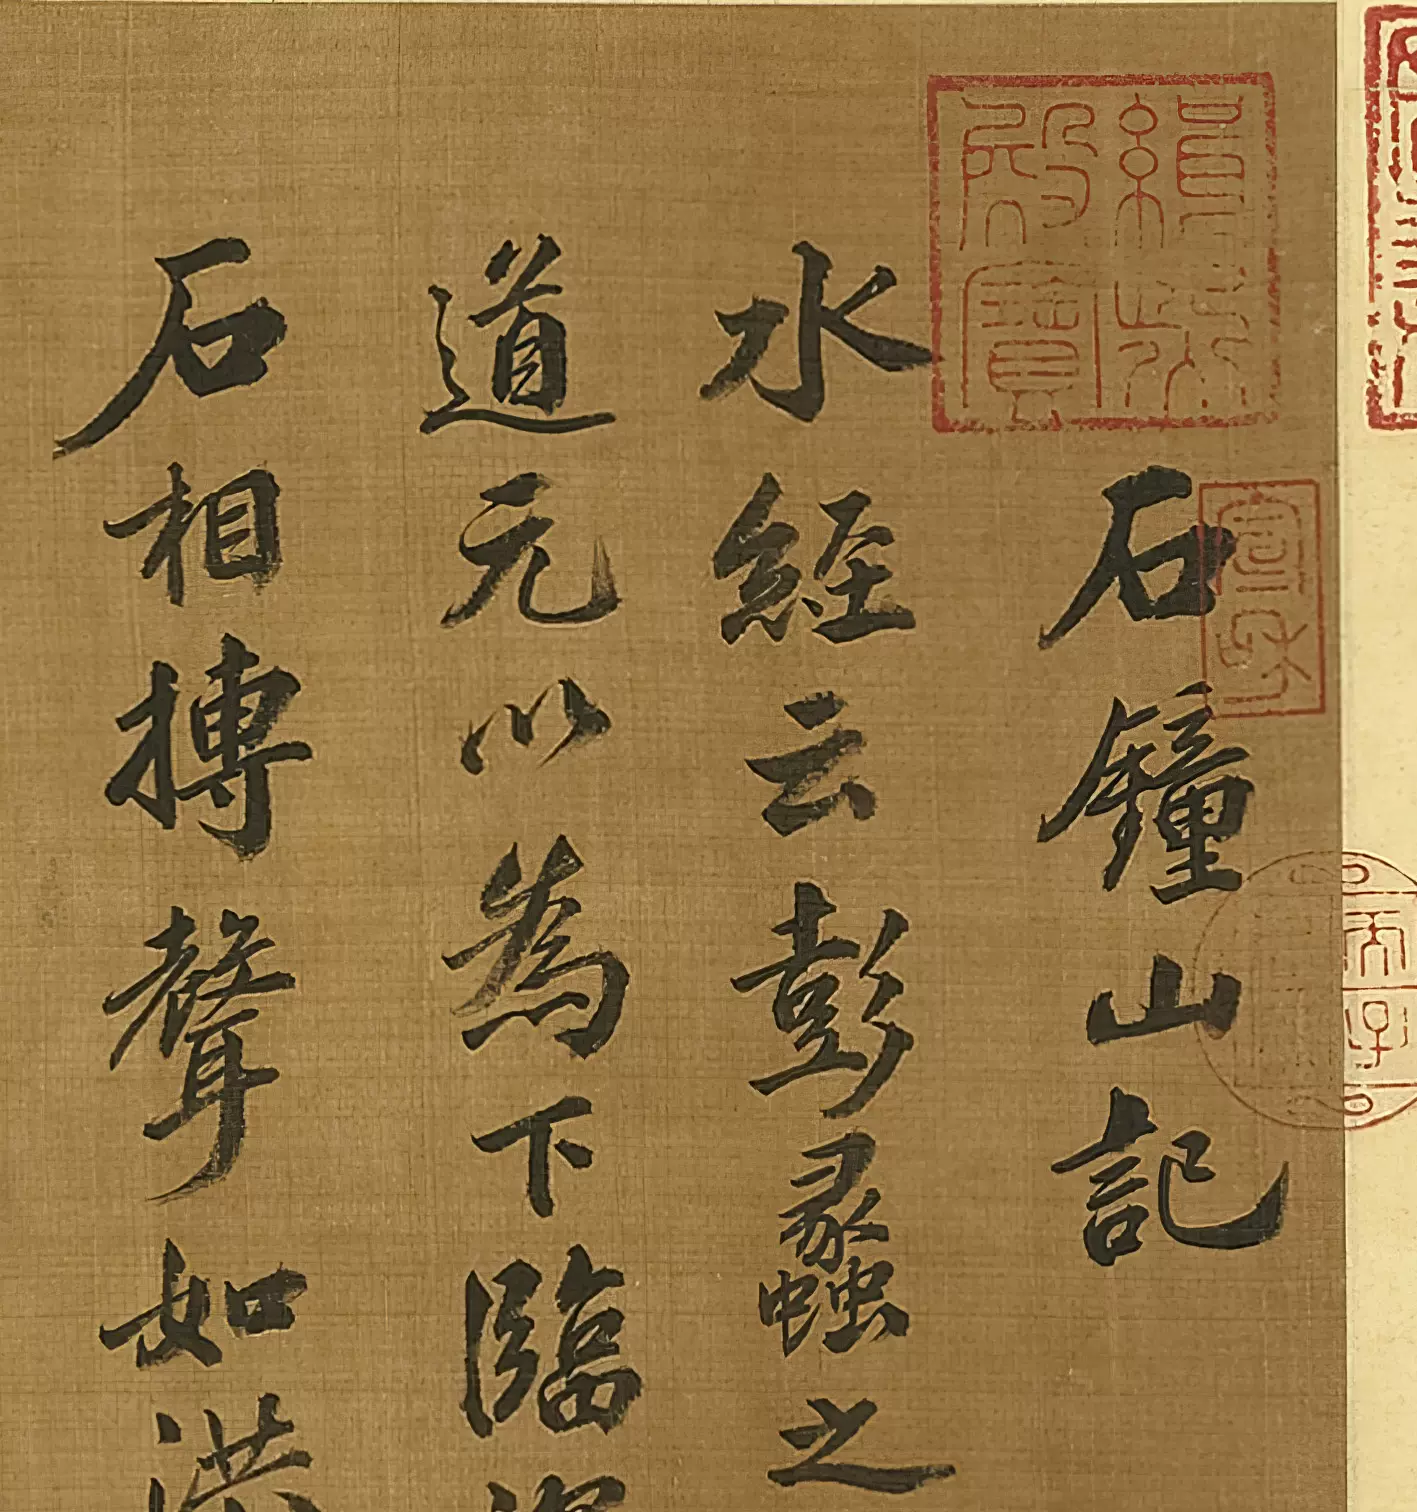 緝熙
殿寶
石鐘山記
水經云彭蠡之
道元以為下臨
石相搏聲如洪